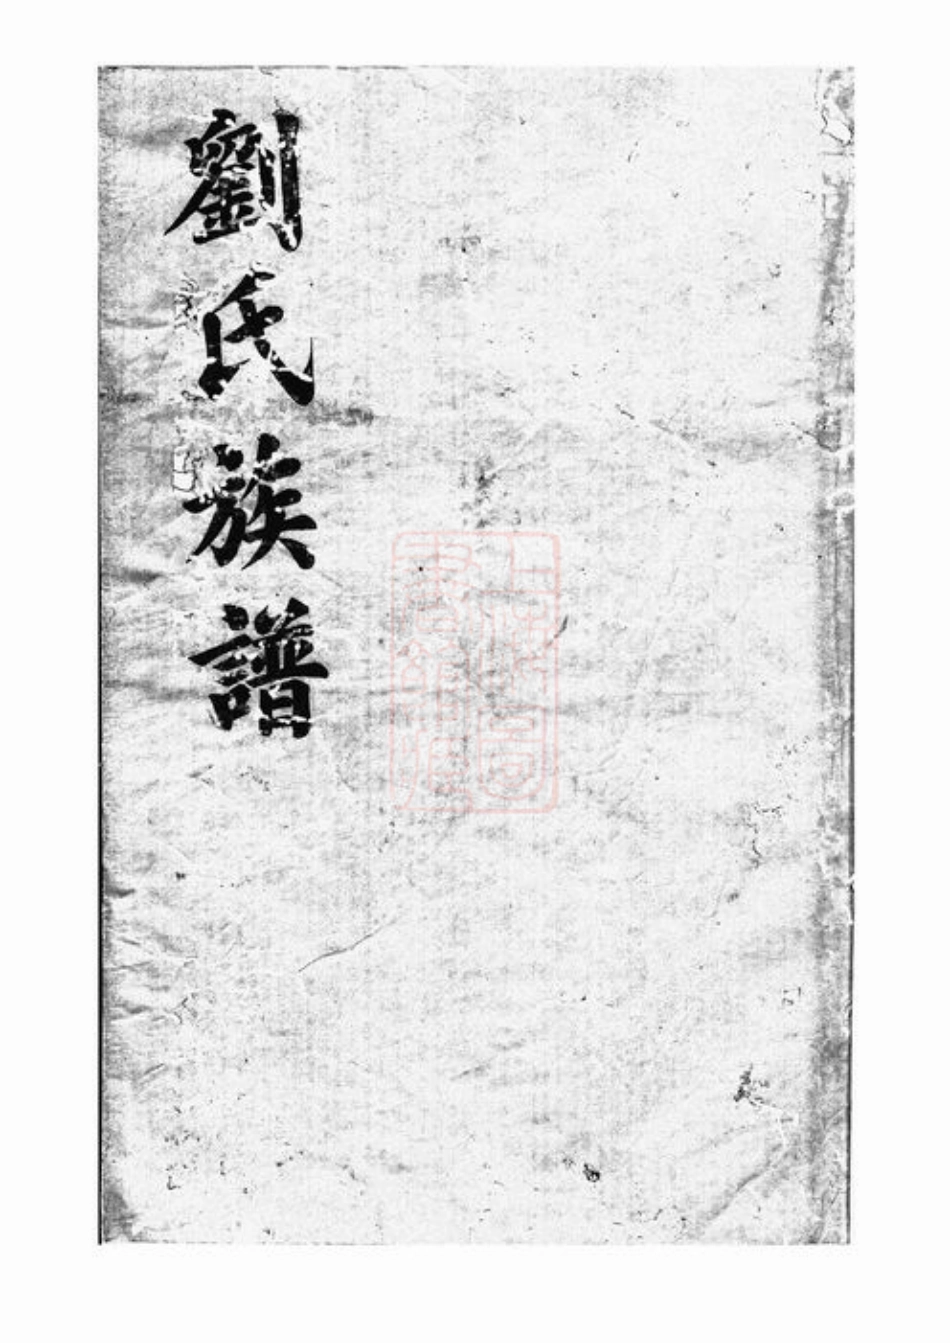 劉氏族譜
上海圖書館藏